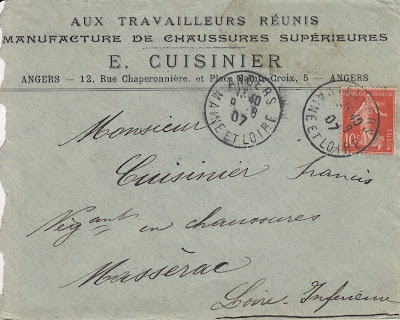 AUX TRAVAILLEURS RÉUNIS
MANUFACTURE DE CHAUSSURES SUPÉRIEURES
E. CUISINIER
ANGERS — 12, Rue Chaperonnière, et Place Sainte-Croix, 5 — ANGERS
ANGERS
13 40
8
07
MAINE ET LOIRE
ANGERS
40
8
07
MAINE ET LOIRE
10
POSTES
Monsieur
Cuisinier Francis
Négant en chaussures
Massérac
Loire Inférieure